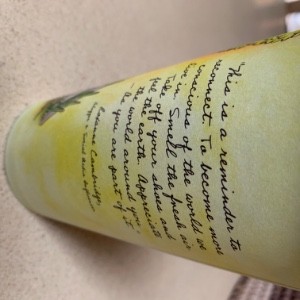 This is a reminder to
reconnect. To become more
conscious of the world we
live in. Smell the fresh air
Take off your shoes and
feel the earth. Appreciate
the world around you,
you are part of it